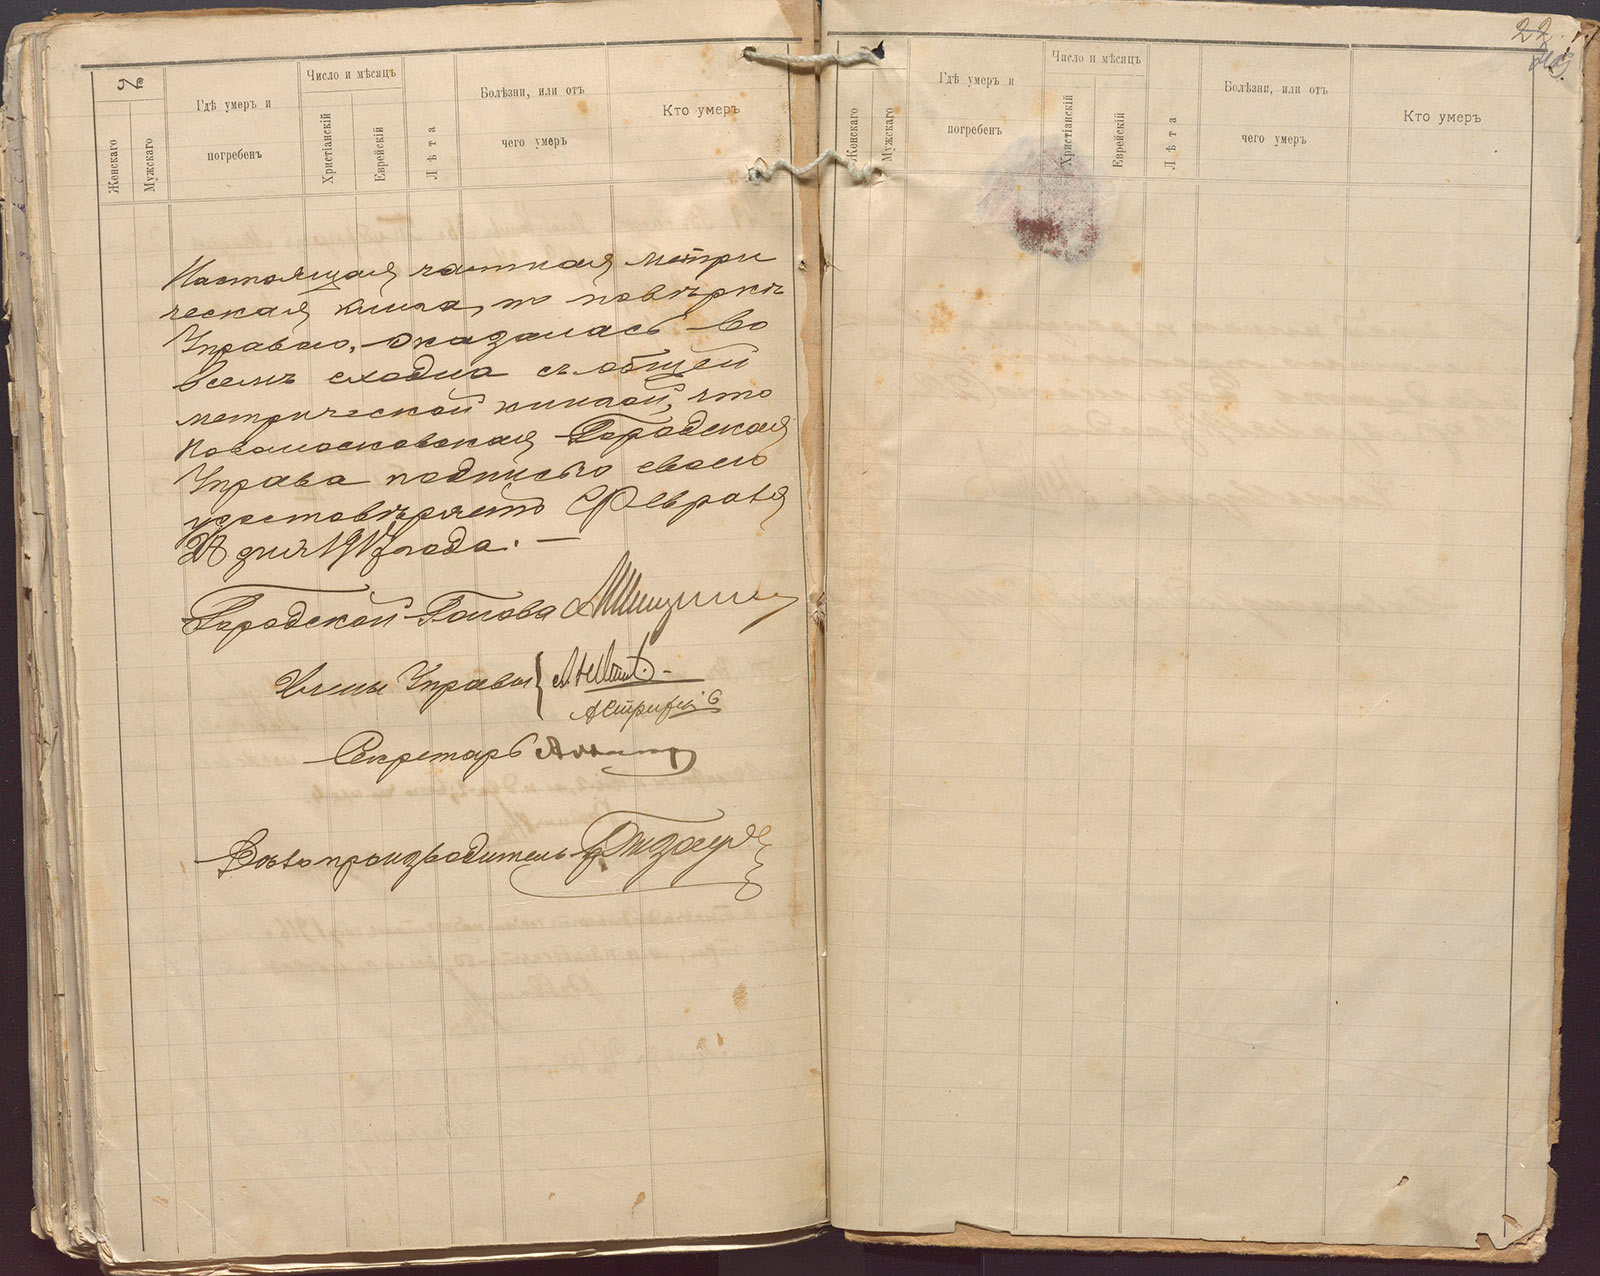 №
Женскаго
Мужскаго
Гдѣ умеръ и
погребенъ
Число и мѣсяцъ
Христіанскій
Еврейскій
Лѣта
Болѣзни, или отъ
чего умеръ
Кто умеръ
Настоящая частная метри
ческая книга, по повѣркѣ
Управою, оказалась во
всемъ сходна съ общей
метрической книгой, что
Новомосковская Городская
Управа подписью своею
удостовѣряетъ Февраля
28 дня 1917 года. —
Городской Голова
Члены Управы {
Секретарь
Дѣлопроизводитель
22.
Женскаго
Мужскаго
Гдѣ умеръ и
погребенъ
Число и мѣсяцъ
Христіанскій
Еврейскій
Лѣта
Болѣзни, или отъ
чего умеръ
Кто умеръ